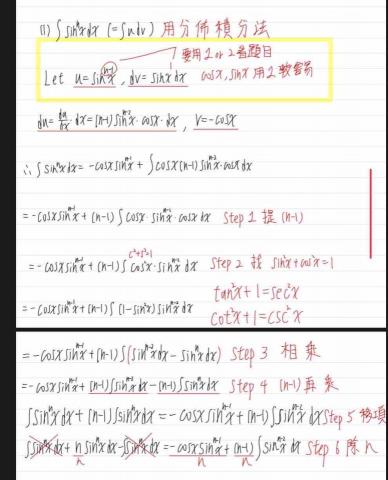 (1) ∫sinⁿxdx (=∫udv) 用分佈積分法
要用1 or 2 看題目
Let u=sinⁿ⁻¹x, dv=sinxdx cosx, sinx 用1較容易
du=du/dx·dx=(n-1)sinⁿ⁻²x·cosx·dx, v=-cosx
∴∫sinⁿxdx=-cosxsinⁿ⁻¹x+∫cosx(n-1)sinⁿ⁻²x·cosxdx
=-cosxsinⁿ⁻¹x+(n-1)∫cosx·sinⁿ⁻²x·cosxdx Step 1 提(n-1)
c²+s²=1
=-cosxsinⁿ⁻¹x+(n-1)∫cos²x·sinⁿ⁻²xdx Step 2 找 sin²x+cos²x=1
tan²x+1=sec²x
=-cosxsinⁿ⁻¹x+(n-1)∫(1-sin²x)sinⁿ⁻²xdx cot²x+1=csc²x
=-cosxsinⁿ⁻¹x+(n-1)∫(sinⁿ⁻²xdx-sinⁿxdx) Step 3 相乘
=-cosxsinⁿ⁻¹x+(n-1)∫sinⁿ⁻²xdx-(n-1)∫sinⁿxdx Step 4 (n-1)再乘
∫sinⁿxdx+(n-1)∫sinⁿxdx=-cosxsinⁿ⁻¹x+(n-1)∫sinⁿ⁻²xdx Step 5 移項
∫sinⁿxdx+n/n∫sinⁿxdx-∫sinⁿxdx=-cosxsinⁿ⁻¹x/n+(n-1)/n∫sinⁿ⁻²xdx Step 6 除n